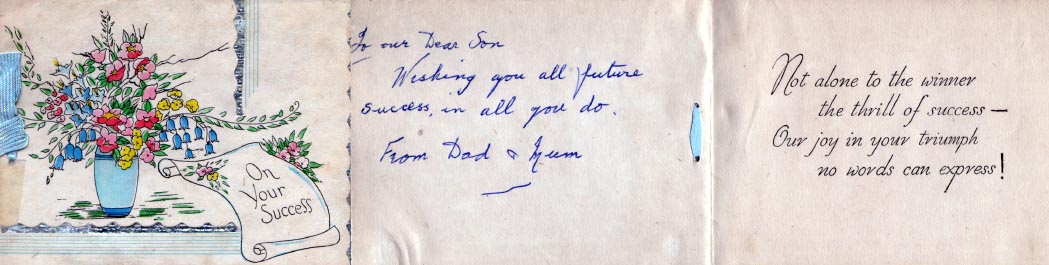 On
Your
Success
To our Dear Son
Wishing you all future
success, in all you do.
From Dad & Mum
Not alone to the winner
the thrill of success —
Our joy in your triumph
no words can express!